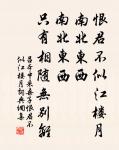 恨君不似江樓月
南北東西
南北東西
只有相隨無別離
呂本中采桑子恨君不
似江樓月